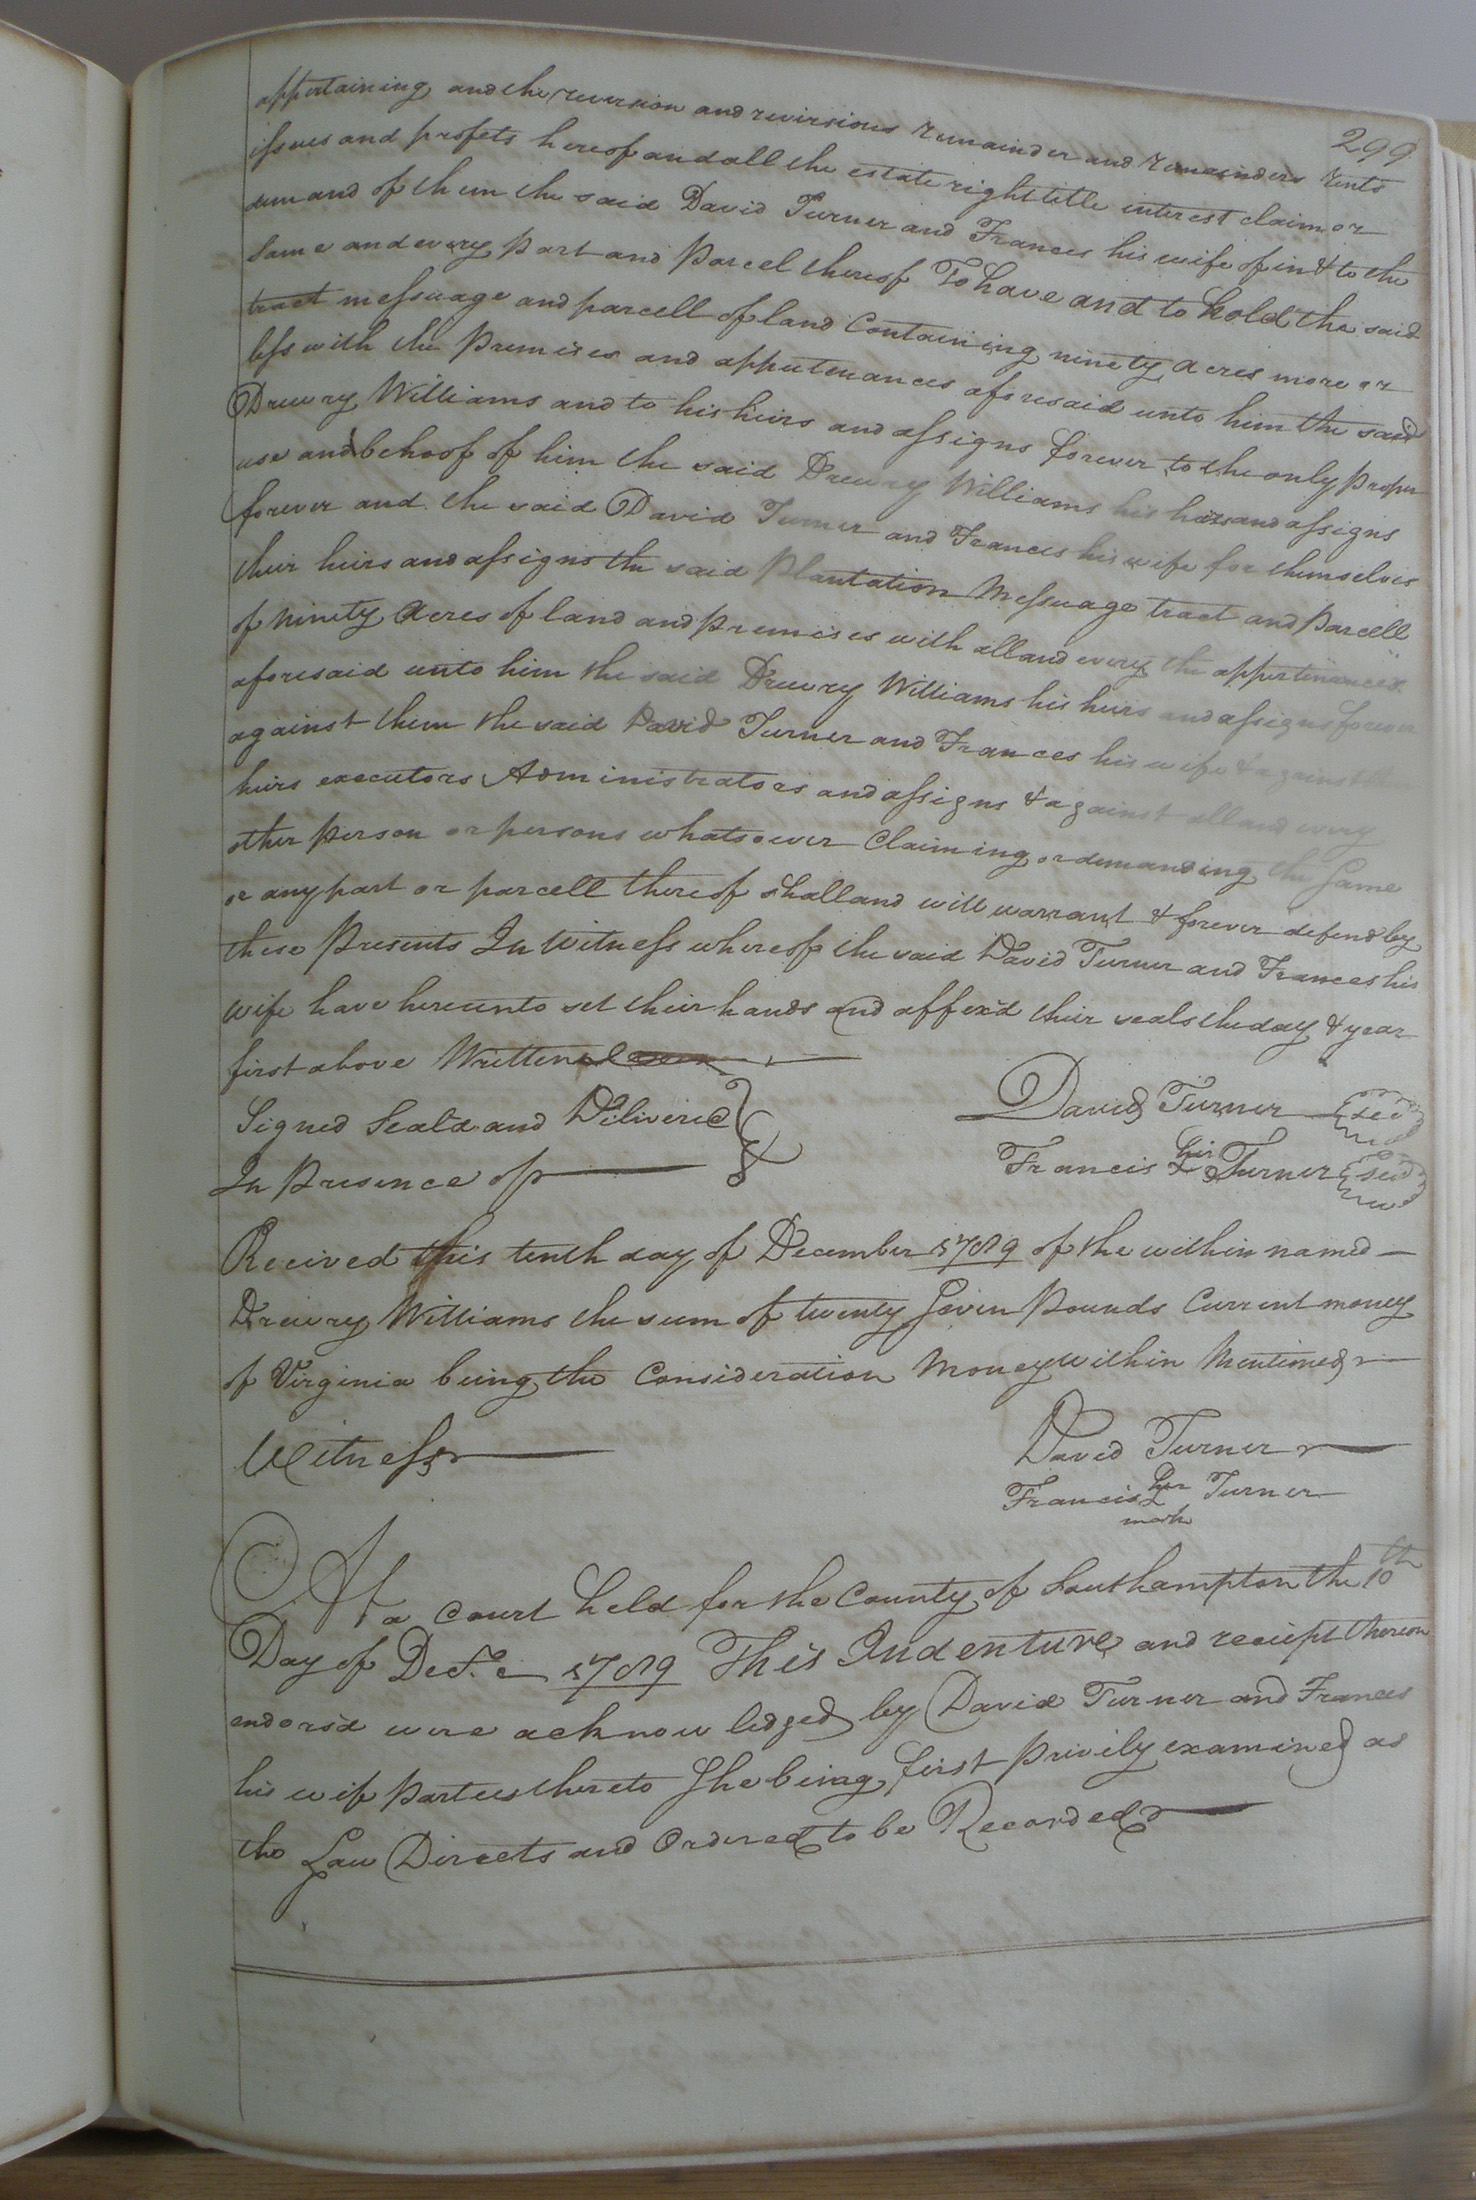 299
appertaining and the reversion and revirsions remainder and remainders rents
issues and profets hereof and all the estate right title interest claim or
demand of them the said David Turner and Frances his wife of in & to the
same and every part and Parcel thereof To have and to hold the said
tract messuage and parcell of land Containing ninety acres more or
less with the Premises and appurtenances aforesaid unto him the said
Drewry Williams and to his heirs and assigns forever to the only proper
use and behoof of him the said Drewry Williams his heirs and assigns
forever and the said David Turner and Frances his wife for themselves
their heirs and assigns the said Plantation Messuage tract and Parcell
of Ninety Acres of land and Premises with all and every the appertinances
aforesaid unto him the said Drewry Williams his heirs and assigns forever
against them the said David Turner and Frances his wife & against
heirs executors Administrators and assigns & against all and every
other Person or persons whatsoever Claiming or demanding the Same
or any part or parcell thereof shall and will warrant & forever defend by
these Presents In Witness whereof the said David Turner and Frances his
wife have hereunto set their hands and affexd their seals the day & year
first above Written
Signed Seald and Delivered
In Presence of
David Turner seal
Francis her Turner seal
Received this tenth day of December 1789 of the within named
Drewry Williams the sum of twenty Seven Pounds Current money
of Virginia being the Consideration Money within Mentioned
Witness
David Turner
Francis her Turner
mark
At a Court held for the County of Southampton the 10th
Day of Decr. 1789 This Indenture and reciept thereon
endorsd were acknowledged by David Turner and Frances
his wife Parties thereto She being first Privily examined as
the Law Directs and Ordered to be Recorded